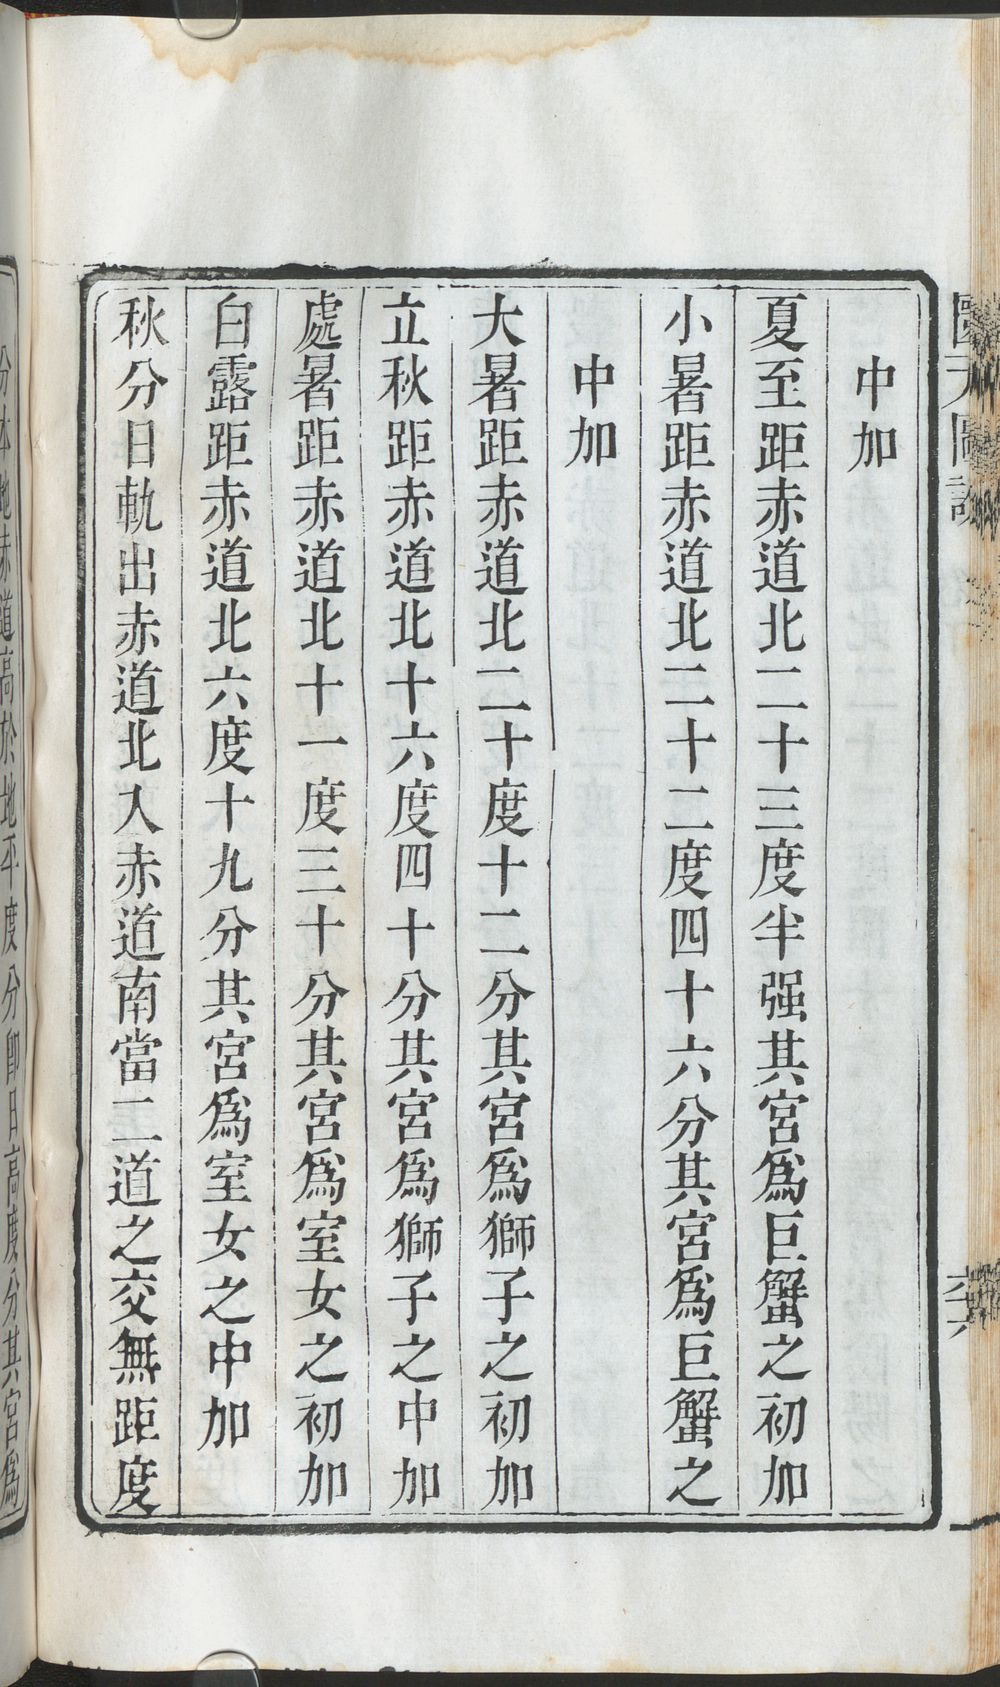 中加
夏至距赤道北二十三度半强其宮爲巨蟹之初加
小暑距赤道北二十二度四十六分其宮爲巨蟹之
中加
大暑距赤道北二十度十二分其宮爲獅子之初加
立秋距赤道北十六度四十分其宮爲獅子之中加
處暑距赤道北十一度三十分其宮爲室女之初加
白露距赤道北六度十九分其宮爲室女之中加
秋分日軌出赤道北入赤道南當二道之交無距度
分本地赤道高於地平度分卽日高度分其宮爲